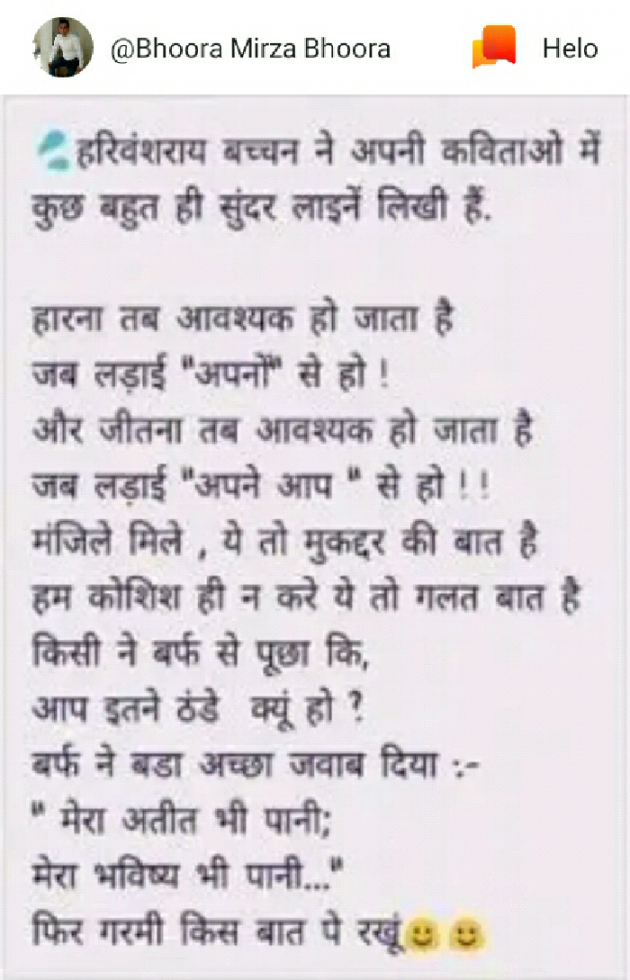 @Bhoora Mirza Bhoora Helo
💦हरिवंशराय बच्चन ने अपनी कविताओ में
कुछ बहुत ही सुंदर लाइनें लिखी हैं.
हारना तब आवश्यक हो जाता है
जब लड़ाई "अपनों" से हो !
और जीतना तब आवश्यक हो जाता है
जब लड़ाई "अपने आप " से हो ! !
मंजिले मिले , ये तो मुकद्दर की बात है
हम कोशिश ही न करे ये तो गलत बात है
किसी ने बर्फ से पूछा कि,
आप इतने ठंडे क्यूं हो ?
बर्फ ने बडा अच्छा जवाब दिया :-
" मेरा अतीत भी पानी;
मेरा भविष्य भी पानी..."
फिर गरमी किस बात पे रखूं🙂🙂